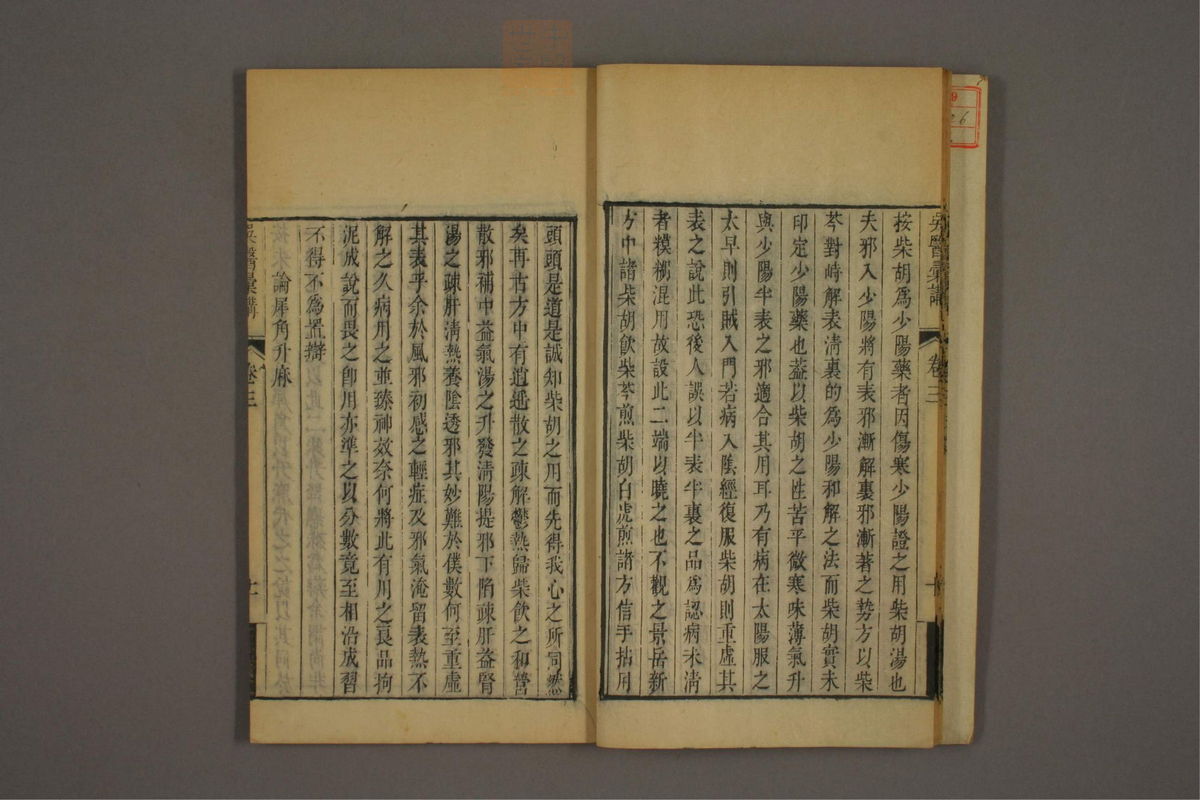 按柴胡爲少陽藥者因傷寒少陽證之用柴胡湯也
夫邪入少陽將有表邪漸解裏邪漸著之勢方以柴
芩對峙解表淸裏的爲少陽和解之法而柴胡實未
印定少陽藥也蓋以柴胡之性苦平微寒味薄氣升
與少陽半表之邪適合其用耳乃有病在太陽服之
太早則引賊入門若病入陰經復服柴胡則重虛其
表之說此恐後人誤以半表半裏之品爲認病未淸
者模糊混用故設此二端以曉之也不觀之景岳新
方中諸柴胡飮柴芩煎柴胡白虎煎諸方信手拈用
吳醫彙講
卷三
十
頭頭是道是誠知柴胡之用而先得我心之所同然
矣再古方中有逍遙散之疎解鬱熱歸柴飮之和營
散邪補中益氣湯之升發淸陽提邪下陷疎肝益腎
湯之疎肝淸熱養陰透邪其妙難於僕數何至重虛
其表乎余於風邪初感之輕症及邪氣淹留表熱不
解之久病用之並臻神效奈何將此有用之良品拘
泥成說而畏之卽用亦準之以分數竟至相沿成習
不得不爲置辯
論犀角升麻
吳醫彙講
卷三
十一